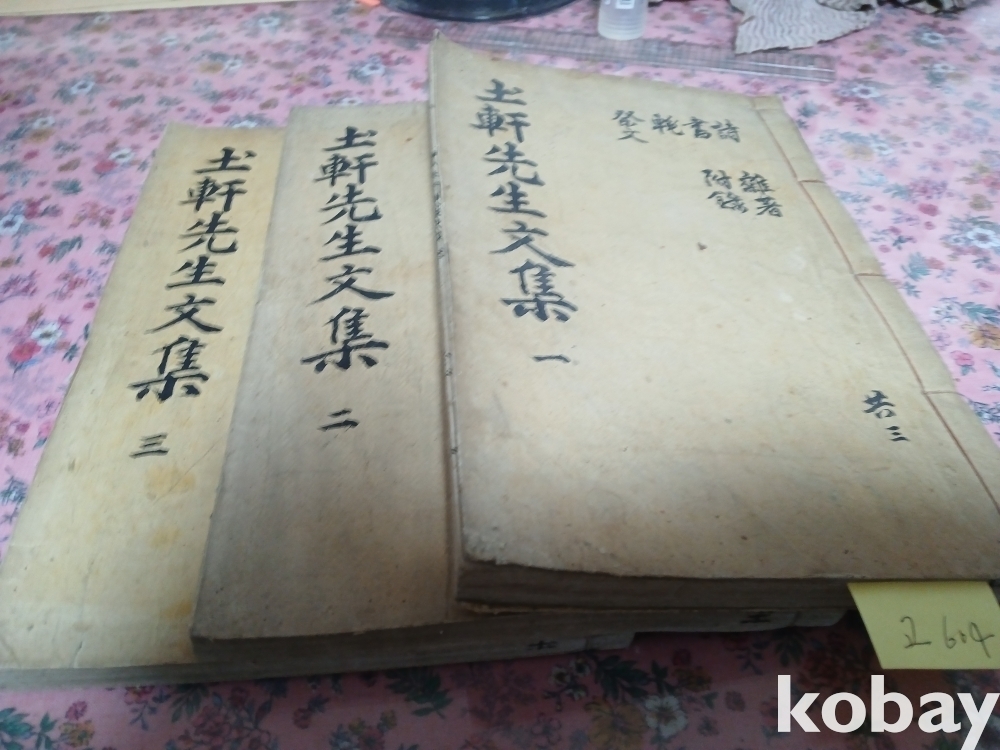 圡軒先生文集 一
詩
書
輓
祭文
雜著
附錄
共三
圡軒先生文集 二
圡軒先生文集 三
604
kobay